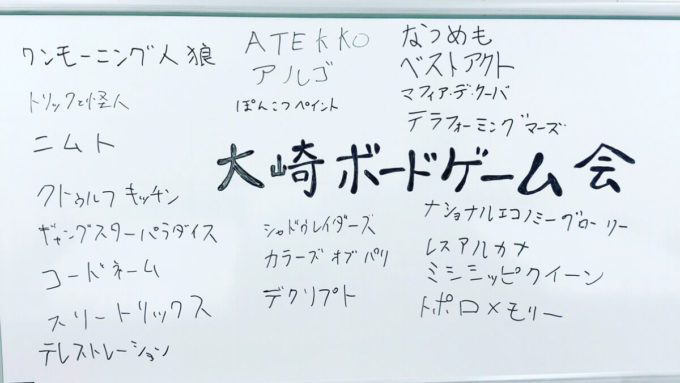 ワンモーニング人狼
トリックと怪人
ニムト
クトゥルフキッチン
ギャングスターパラダイス
コードネーム
スリートリックス
テレストレーション
ATEKKO
アルゴ
ぽんこつペイント
大崎ボードゲーム会
シャドウレイダーズ
カラーズオブパリ
デクリプト
なつめも
ベストアクト
マフィア・デ・クーバ
テラフォーミングマーズ
ナショナルエコノミーグローリー
レスアルカナ
ミシシッピクイーン
トポロメモリー